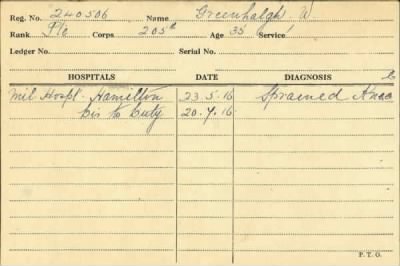 Reg. No. 240506 Name Greenhalgh W.
Rank Pte Corps 205th Age 35 Service
Ledger No. Serial No.
HOSPITALS DATE DIAGNOSIS
Mil Hospl. Hamilton 23.5.16 Sprained Knee
Dis to Duty 20.7.16
P. T. O.